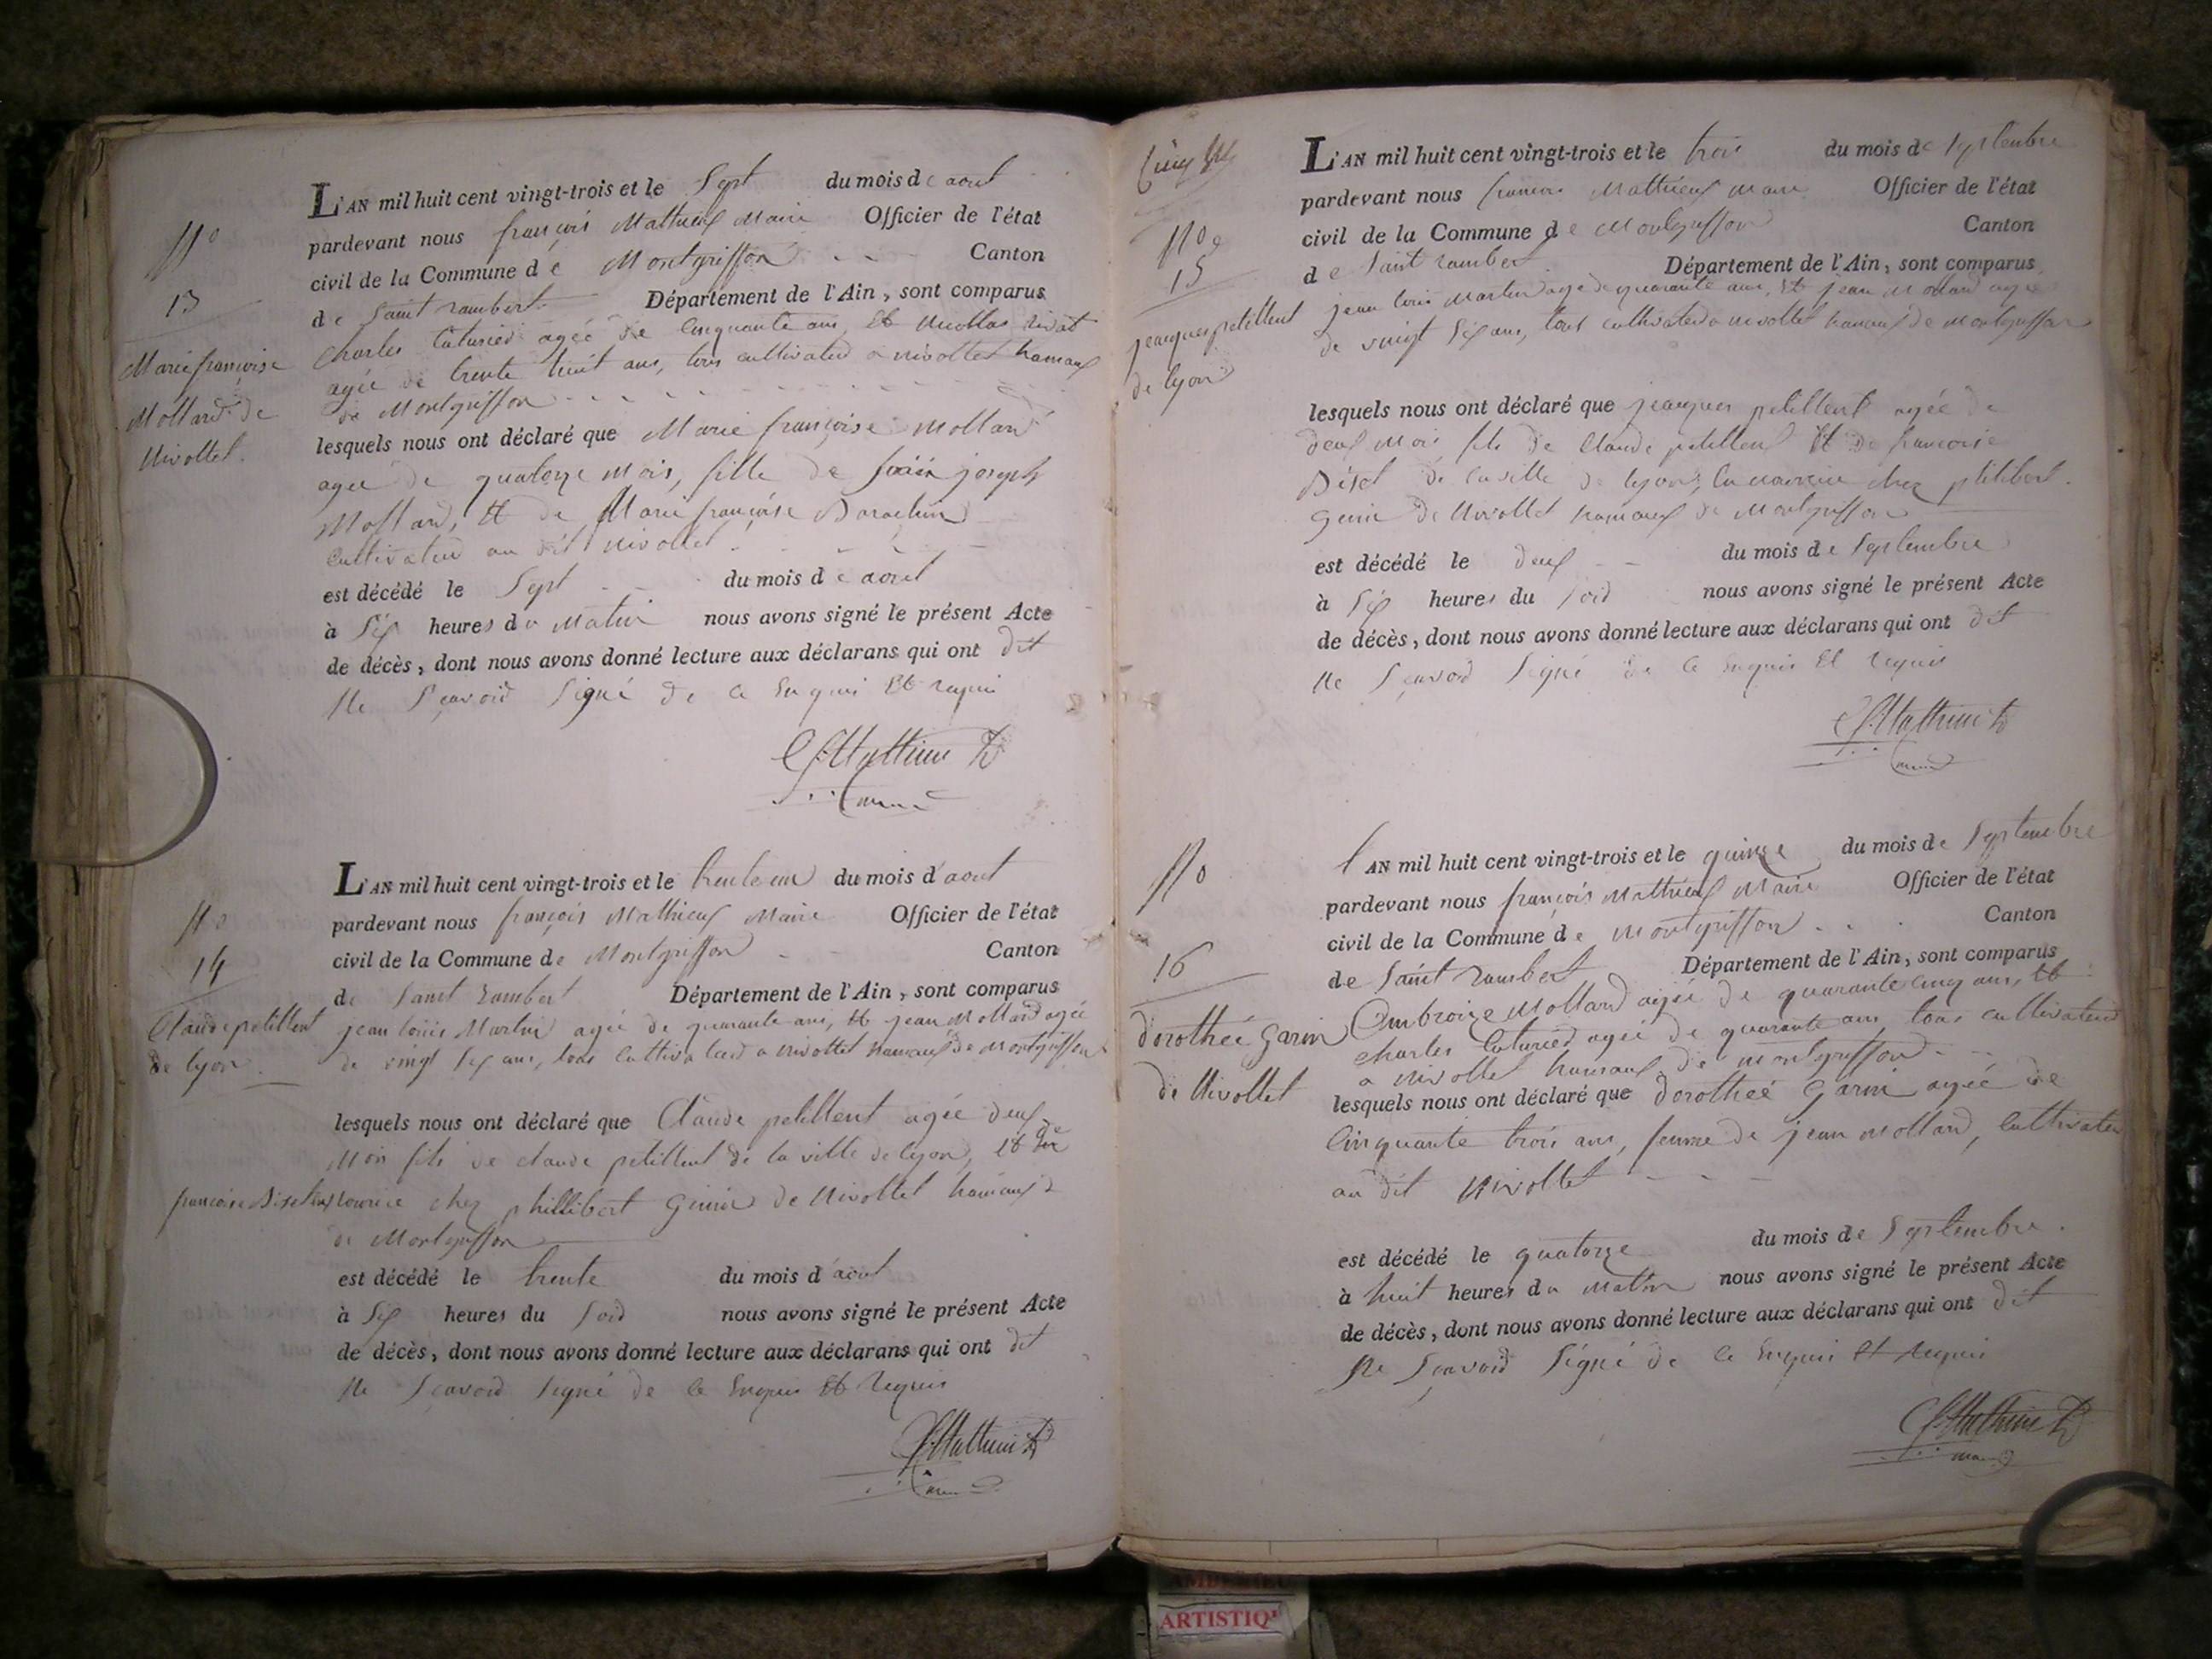 N°
13
Marie françoise
Mollard de
Nivollet.
L'AN mil huit cent vingt-trois et le Sept du mois de aout
pardevant nous françois Mathieux Maire Officier de l'état
civil de la Commune de Montgriffon Canton
de Saint rambert Département de l'Ain, sont comparus
Charles agée de Cinquante ans, Et Nicollas
agée de trente huit ans, tous cultivated a nivollet hamaux
de Montgriffon
lesquels nous ont déclaré que Marie françoise Mollard
agée de quatorze mois, fille de joseph
Mollard, Et de Marie françoise
Cultivated au dit nivollet.
est décédé le Sept du mois de aout
à Six heures du Matin nous avons signé le présent Acte
de décès, dont nous avons donné lecture aux déclarans qui ont dit
Ne Sçavoid Signé de ce Enquis Et requi
N°
14
Claude petillent
de lyon
L'AN mil huit cent vingt-trois et le trente un du mois d'aout
pardevant nous françois Mathieux Maire Officier de l'état
civil de la Commune de Montgriffon Canton
de Saint rambert Département de l'Ain, sont comparus
jean louis Martin agée de quarante ans, Et jean Mollard agée
de vingt Six ans, tous Cultivated a Nivollet hamaux de Montgriffon
lesquels nous ont déclaré que Claude petillent agée deux
Mois fils de claude petillent de la ville de lyon, Et de
françoise chez phillibert de Nivollet hamaux
de Montgriffon
est décédé le trente du mois d'aout
à Six heures du Soid nous avons signé le présent Acte
de décès, dont nous avons donné lecture aux déclarans qui ont dit
Ne Sçavoid Signé de ce Enquis Et requis
N°
15
jeacques petillent
de lyon
L'AN mil huit cent vingt-trois et le trois du mois de Septembre
pardevant nous francois Mathieux Maire Officier de l'état
civil de la Commune de Montgriffon Canton
de Saint rambert Département de l'Ain, sont comparus
jean louis Martin age de quarante ans, Et jean Mollard agée
de vingt Six ans, tous cultivated a nivollet hamaux de Montgriffon
lesquels nous ont déclaré que jeacques petillent agée de
deux Mois fils de Claude petillent Et de francoise
de la ville de lyon, chez philibert
de Nivollet hamaux de Montgriffon
est décédé le deux du mois de Septembre
à Six heures du Soid nous avons signé le présent Acte
de décès, dont nous avons donné lecture aux déclarans qui ont dit
Ne Sçavoid Signé de ce Enquis Et requis
N°
16
dorothée Garin
de Nivollet
L'AN mil huit cent vingt-trois et le quinze du mois de Septembre
pardevant nous françois Mathieux Maire Officier de l'état
civil de la Commune de Montgriffon Canton
de Saint rambert Département de l'Ain, sont comparus
Ambroize Mollard agée de quarante Cinq ans, Et
charles agée de quarante ans, tous cultivated
a nivollet hamaux de montgriffon
lesquels nous ont déclaré que dorothée Garin agée de
Cinquante trois ans, femme de jean Mollard, Cultivated
au dit Nivollet
est décédé le quatorze du mois de Septembre
à huit heures du Matin nous avons signé le présent Acte
de décès, dont nous avons donné lecture aux déclarans qui ont dit
Ne Sçavoid Signé de ce Enquis Et requis
ARTISTIQ